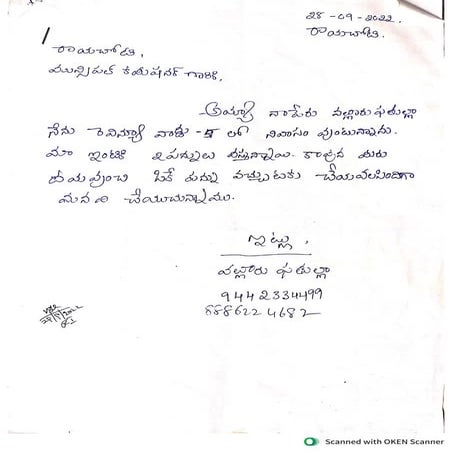 28-09-2022.
రాయచోటి.
రాయచోటి,
మున్సిపల్ కమిషనర్ గారికి,
అయ్యా నాపేరు వల్లూరు ఫతుల్లా
నేను రెవిన్యూ వార్డు -5 లో నివాసం వుంటున్నాను.
మా ఇంటికి 2 పన్నులు వస్తున్నాయి. కావున తమరు
దయవుంచి ఒకే పన్ను వచ్చుటకు చేయవలసిందిగా
మనవి చేయుచున్నాము.
ఇట్లు,
వల్లూరు ఫతుల్లా
9442334499
8886224682
Scanned with OKEN Scanner